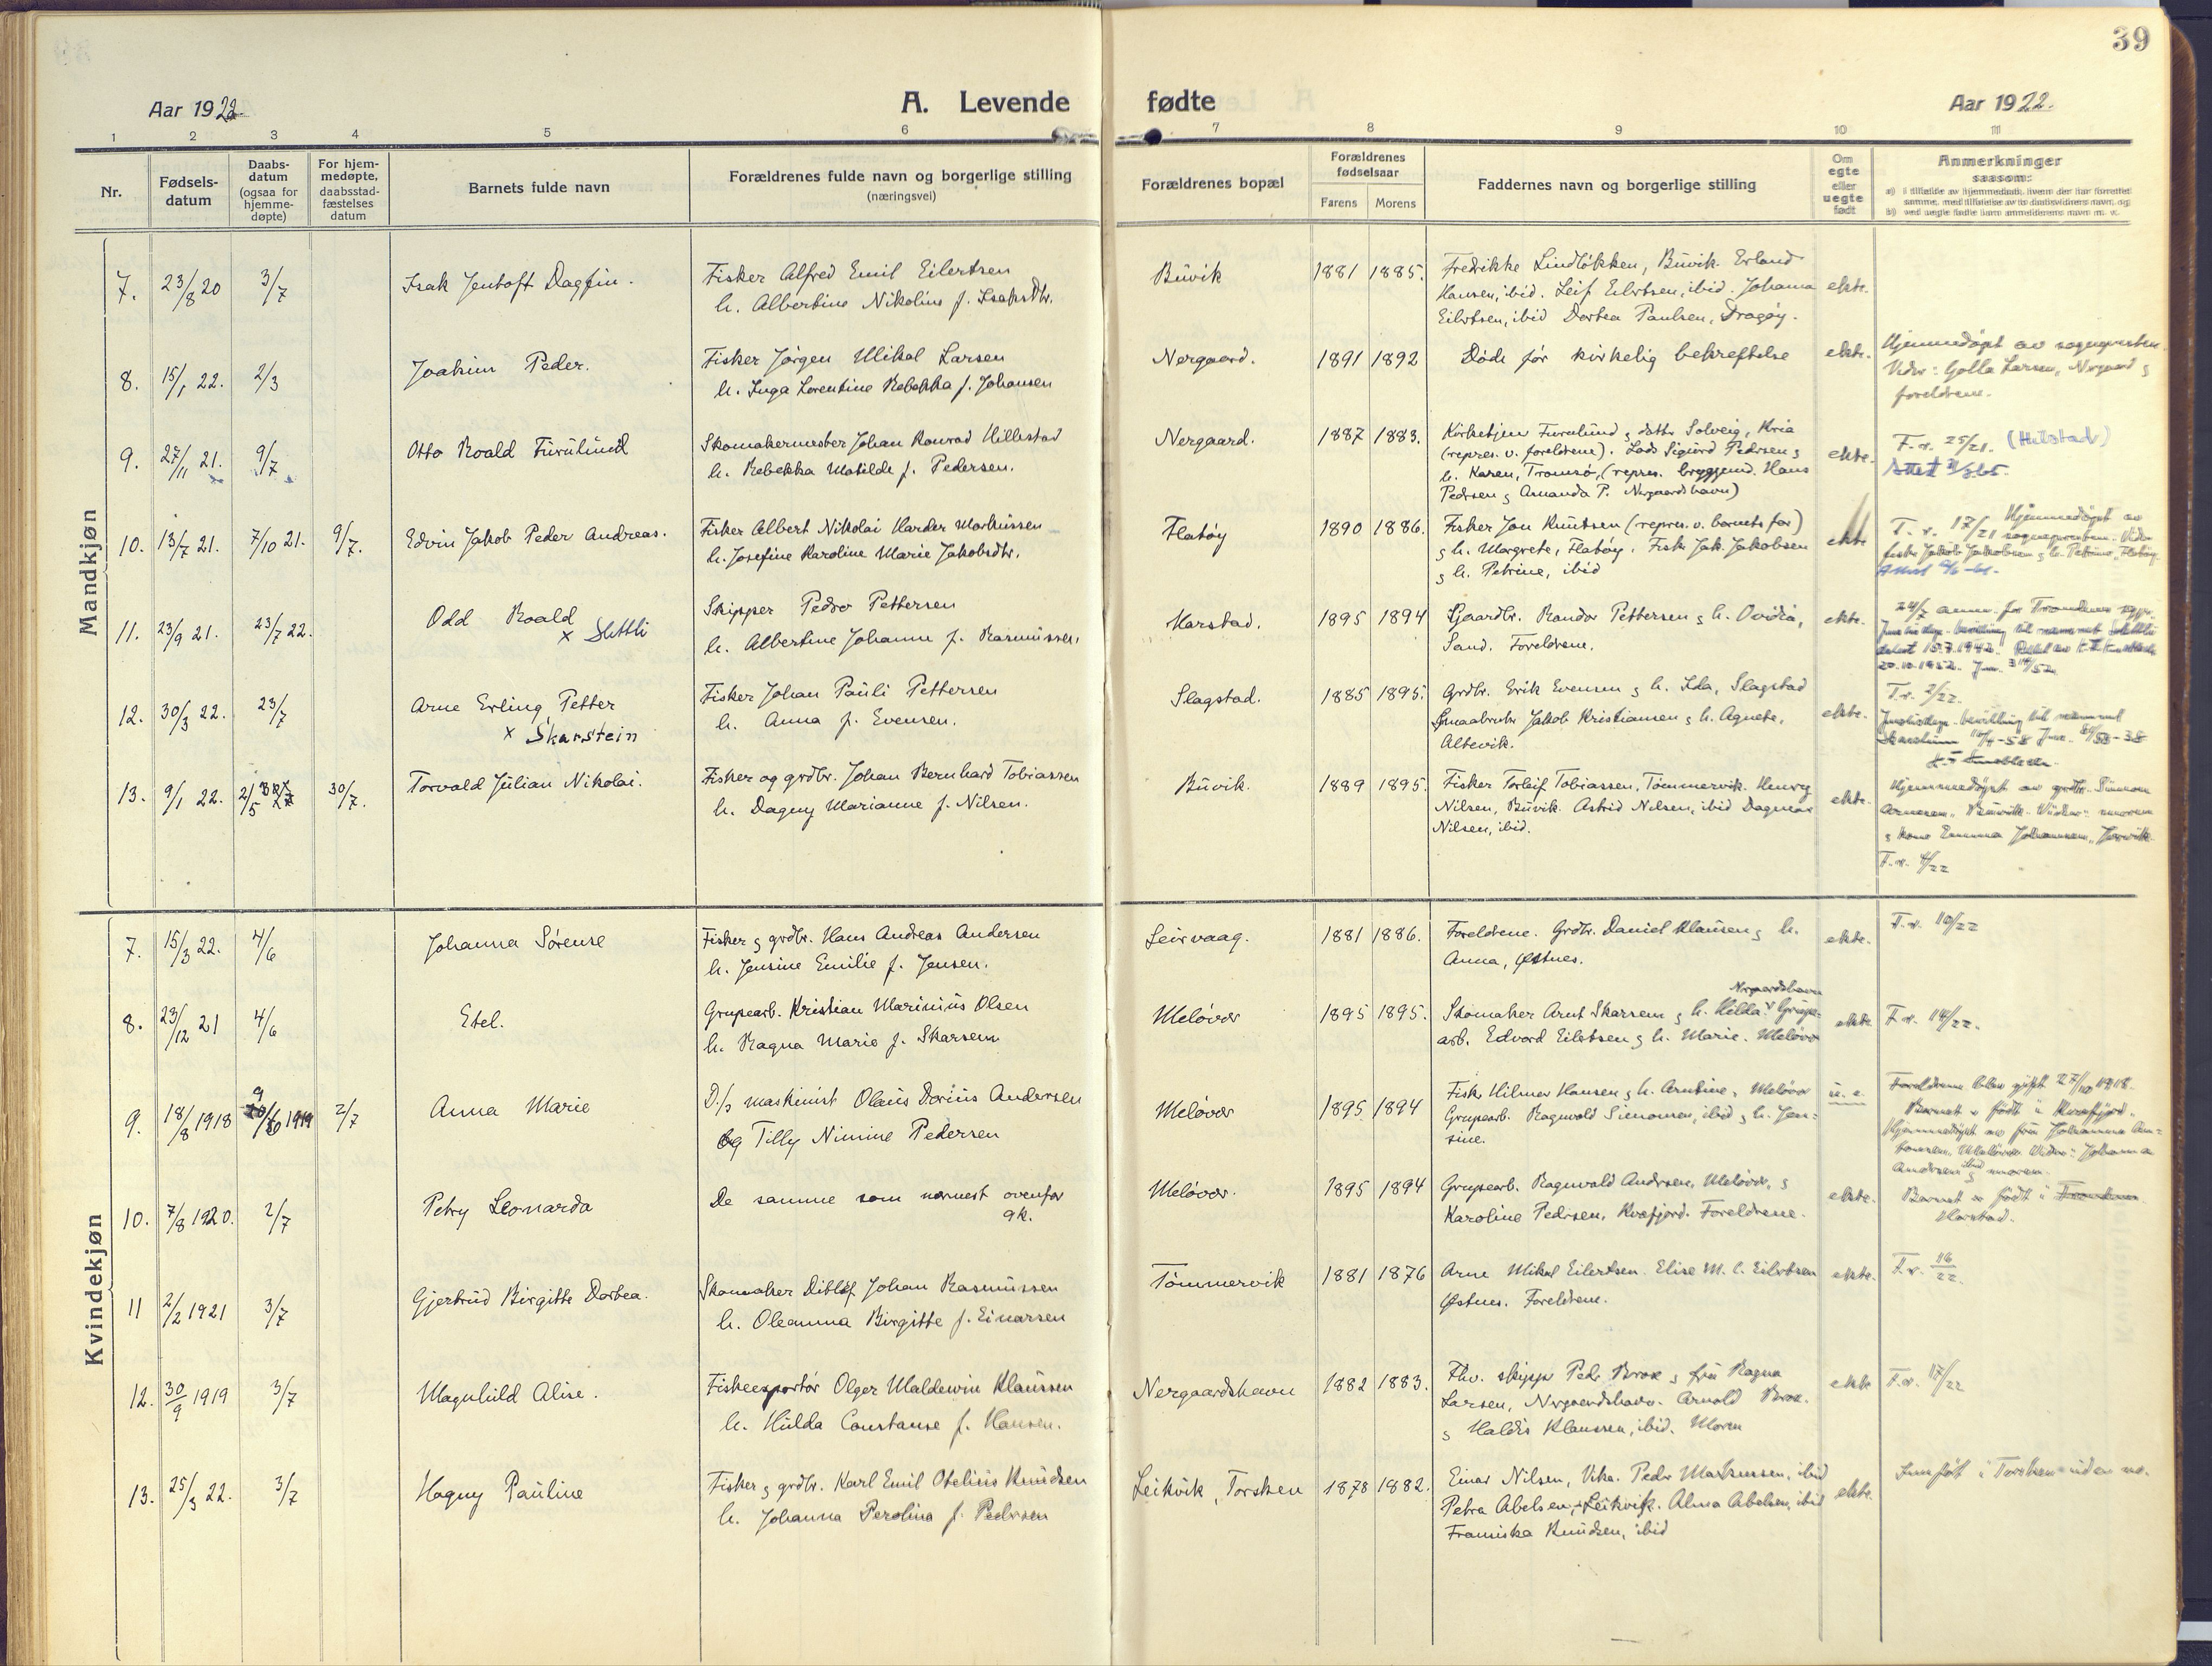 39
Aar 1922.
A. Levende fødte
Aar 1922.
1 2 3 4 5 6 7 8 9 10 11
Nr.
Fødsels-
datum
Daabs-
datum
(ogsaa for
hjemme-
døpte)
For hjem-
medøpte,
daabsstad-
fæstelses
datum
Barnets fulde navn
Forældrenes fulde navn og borgerlige stilling
(næringsvei)
Forældrenes bopæl
Forældrenes
fødselsaar
Farens Morens
Faddernes navn og borgerlige stilling
Om
egte
eller
uegte
født
Anmerkninger
saasom:
a) i tilfælde av hjemmedaab, hvem der har forrettet
samme, med tilføielse av to daabsvidners navn, og
b) ved uegte fødte barn anmelderens navn m. v.
Mandkjøn
7. 23/8 20 3/7 Isak Jentoft Dagfin.
Fisker Alfred Emil Eilertsen
h. Albertine Nikoline f. Isaksdtr.
Buvik 1881 1885.
Fredrikke Lindløkken, Buvik. Erland
Hansen, ibid. Leif Eilertsen, ibid. Johanna
Eilertsen, ibid Dortea Paulsen, Dragøy.
ekte.
8. 15/1 22. 2/3 Joakim Peder.
Fisker Jørgen Mikal Larsen
h. Inga Lorentine Rebekka f. Johansen
Nergaard. 1891 1892
Døde før kirkelig bekreftelse
ekte.
Hjemmedøpt av sogneprsten.
Vidner: Golla Larsen, Nergaard &
foreldrene.
9. 27/11 21. 9/7 Otto Roald Furulund
Skomakermester Johan Konrad Hillestad
h. Rebekka Matilde f. Pedersen.
Nergaard. 1887 1883.
Kirketjener Furulund & dtr. Solveig, Kria
(repres. v. foreldrene). Lods Sigurd Pedersen &
h. Karen, Tromsø, (repres. bryggem. Hans
Pedersen & Amanda P. Nergaardshavn)
ekte.
F. r. 25/21.
10. 13/7 21. 7/10 21. 9/7. Edvin Jakob Peder Andreas.
Fisker Albert Nikolai Harder Markussen
h. Josefine Karoline Marie Jakobsdtr.
Flatøy 1890 1886.
Fisker Jon Knutsen (repres. v. barnets far)
& h. Margrete, Flatøy. Fisk. Jak. Jakobsen
& h. Petrine, ibid
ekte
F. r. 17/21 Hjemmedøpt av
sogneprsten. Vidn.
fisker Jakob Jakobsen & h. Petrine, Flatøy.
11. 23/9 21. 23/7 22. Odd Roald
x Slettli
Skipper Peder Pettersen
h. Albertine Johanne f. Rasmussen.
Harstad. 1895 1894
Gaardbr. Randor Pettersen & h. Ovidia,
Sand. Foreldrene.
ekte.
24/7 anm. for Trondenes
Justisdep. bevilling til navnet Slettli
datert 15.7.1942.
20.10.1952.
12. 30/3 22. 23/7 Arne Erling Petter
x Skarstein
Fisker Johan Pauli Pettersen
h. Anna f. Evensen.
Slagstad. 1885 1895.
Grdbr. Erik Evensen & h. Ida, Slagstad
Smaabruker Jakob Kristiansen & h. Agnete,
Altevik.
ekte.
F. r. 2/22.
Justisdep. bevilling til navnet
Skarstein
13. 9/1 22. 2/5 30/7. Torvald Julian Nikolai.
Fisker og grdbr. Johan Bernhard Tobiassen
h. Dagny Marianne f. Nilsen.
Buvik. 1889 1895.
Fisker Torleif Tobiassen, Tømmervik. Henry
Nilsen, Buvik. Astrid Nilsen, ibid Dagmar
Nilsen, ibid.
ekte.
Hjemmedøpt av grdbr. Simon
Arnesen, Buvik. Vidner: moren
& kone Emma Johansen,
F. r. 4/22
Kvindekjøn
7. 15/3 22. 4/6 Johanna Sørense
Fisker & grdbr. Hans Andreas Andersen
h. Jensine Emilie f. Jensen.
Leirvaag. 1881 1886.
Foreldrene. Grdbr. Daniel Klausen & h.
Anna, Østnes.
ekte.
F. r. 10/22
8. 23/12 21 4/6 Etel.
Grupearb. Kristian Marinius Olsen
h. Ragna Marie f. Skarsem
Meløvær 1895 1895.
Nergaardshavn
Skomaker Arnt Skarsem & h. Hilda. v Grupe-
arb. Edvard Eilertsen & h. Marie. Meløvær
ekte
F. r. 14/22.
9. 18/8 1918 1919 2/7 Anna Marie
D./s maskinist Olaus Dorius Andersen
og Tilly Nimine Pedersen
Meløvær 1895 1894
Fisk. Hilmer Hansen & h. Arntine, Meløvær
Grupearb. Ragnvald Simonsen, ibid & h. Jen-
sine.
u. e.
Foreldrene blev gift 27/10 1918.
Barnet er født i Kvæfjord.
Hjemmedøpt av fru Johanna An-
tonsen, Meløvær. Vidner: Johanna
Andersen ibid & moren.
10. 7/8 1920. 2/7 Petry Leonarda
De samme som nærmest ovenfor
9k.
Meløvær. 1895 1894
Grupearb. Ragnvald Andersen, Meløvær, &
Karoline Pedersen, Kvæfjord. Foreldrene.
ekte.
Barnet er født i Trondenes
Harstad.
11 2/2 1921 3/7 Gjertrud Birgitte Dortea.
Skomaker Ditløf Johan Rasmussen
h. Oleanna Birgitte f. Einarsen
Tømmervik 1881 1876
Arne Mikal Eilertsen. Elise M. C. Eilertsen
Østnes. Foreldrene.
ekte.
F. r. 16/22.
12. 30/9 1919 3/7 Magnhild Alise.
Fiskeexportør Olger Waldewin Klaussen
h. Hulda Constanse f. Hansen.
Nergaardshavn 1882 1883.
Fhv. skipper Peder Brox & fru Ragna
Larsen, Nergaardshavn. Arnold Brox.
& Haldis Klaussen, ibid. Moren
ekte
F. r. 17/22
13. 25/3 22. 3/7 Hagny Pauline
Fisker & grdbr. Karl Emil Otelius Knudsen
h. Johanna Perolina f. Pedersen
Leikvik, Torsken 1878 1882.
Einar Nilsen, Vika. Peder Markussen, ibid
Petra Abelsen, Leikvik. Alma Abelsen, ibid
Framiska Knudsen, ibid
ekte.
Innført i Torsken uden no.